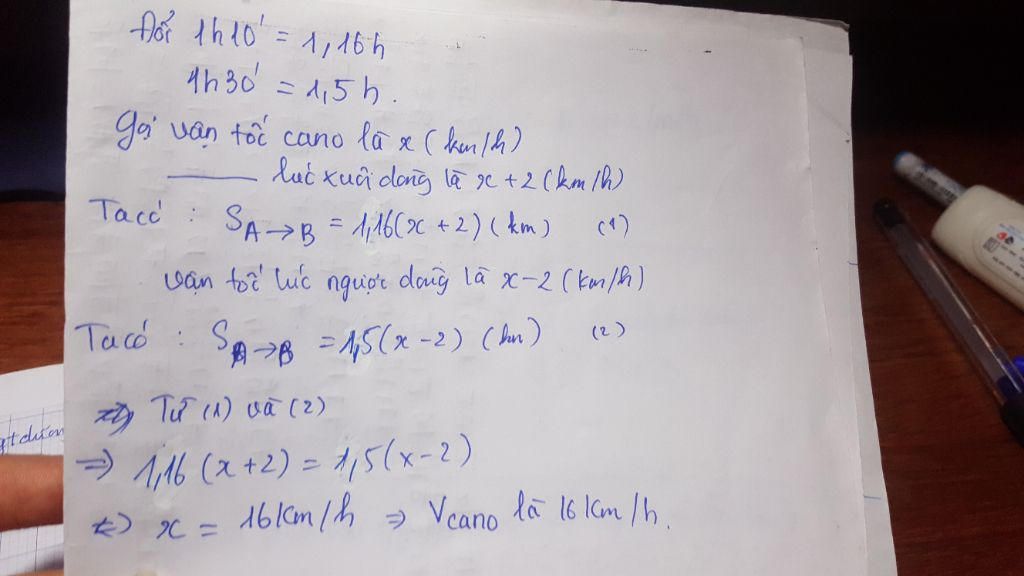 Đổi 1h10' = 1,16h
1h30' = 1,5h.
Gọi vận tốc cano là x (km/h)
——— lúc xuôi dòng là x + 2 (km/h)
Ta có : S A→B = 1,16(x + 2) (km) (1)
vận tốc lúc ngược dòng là x - 2 (km/h)
Ta có : S A→B = 1,5(x - 2) (km) (2)
=> Từ (1) và (2)
=> 1,16 (x + 2) = 1,5(x - 2)
<=> x = 16 km/h => Vcano là 16 km/h.